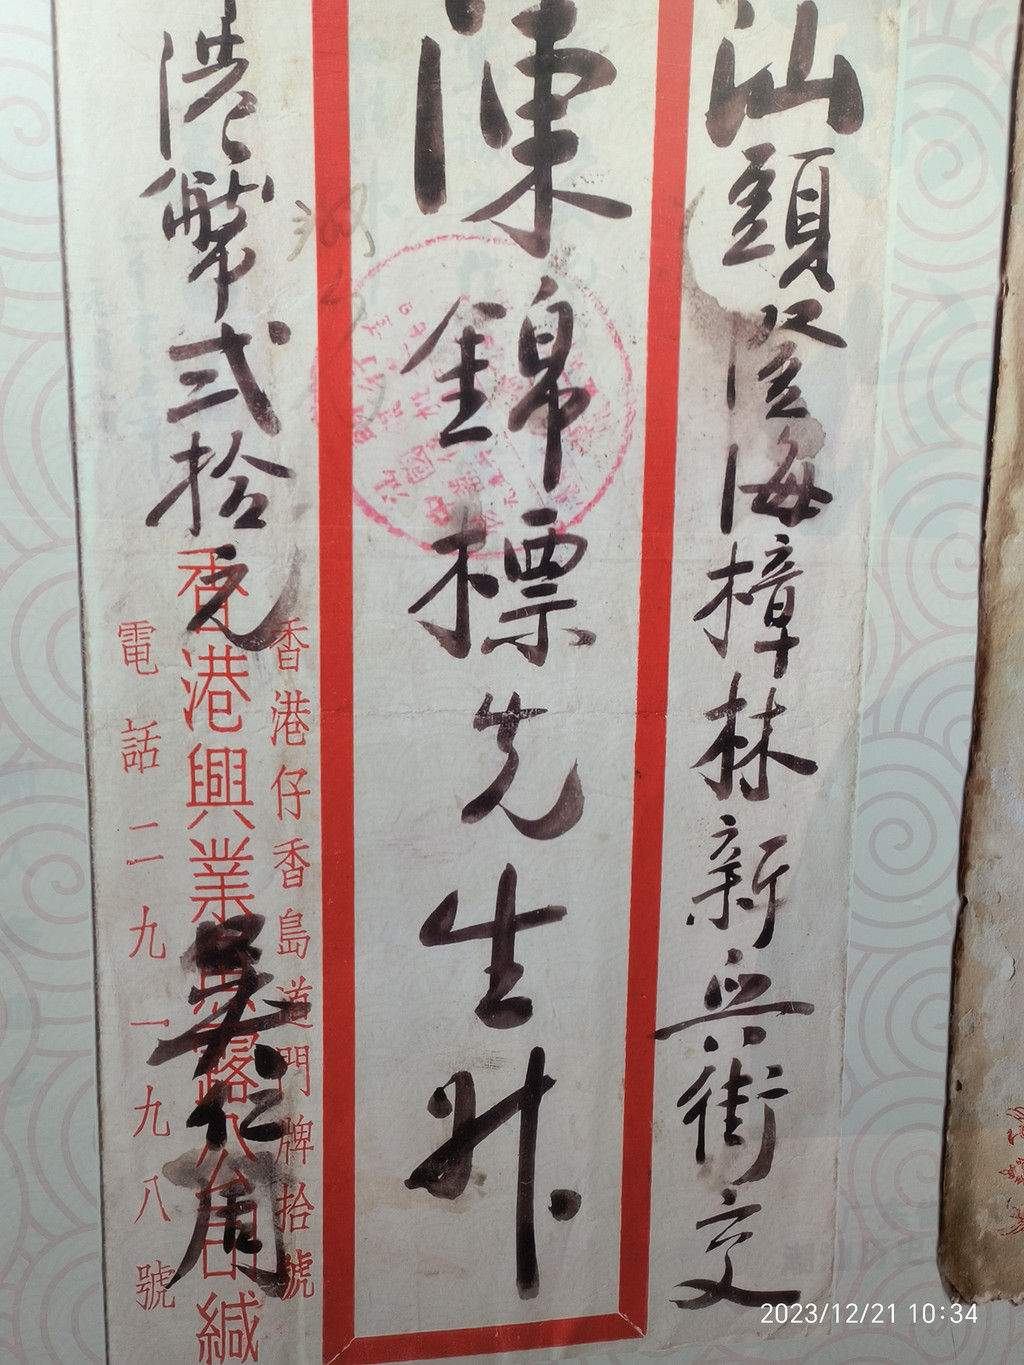 汕頭澄海樟林新興街交
陳錦標先生升
港幣貳拾元
吳仁周
香港仔香島道門牌拾號
香港興業
緘
電話二九一九八號
2023/12/21 10:34